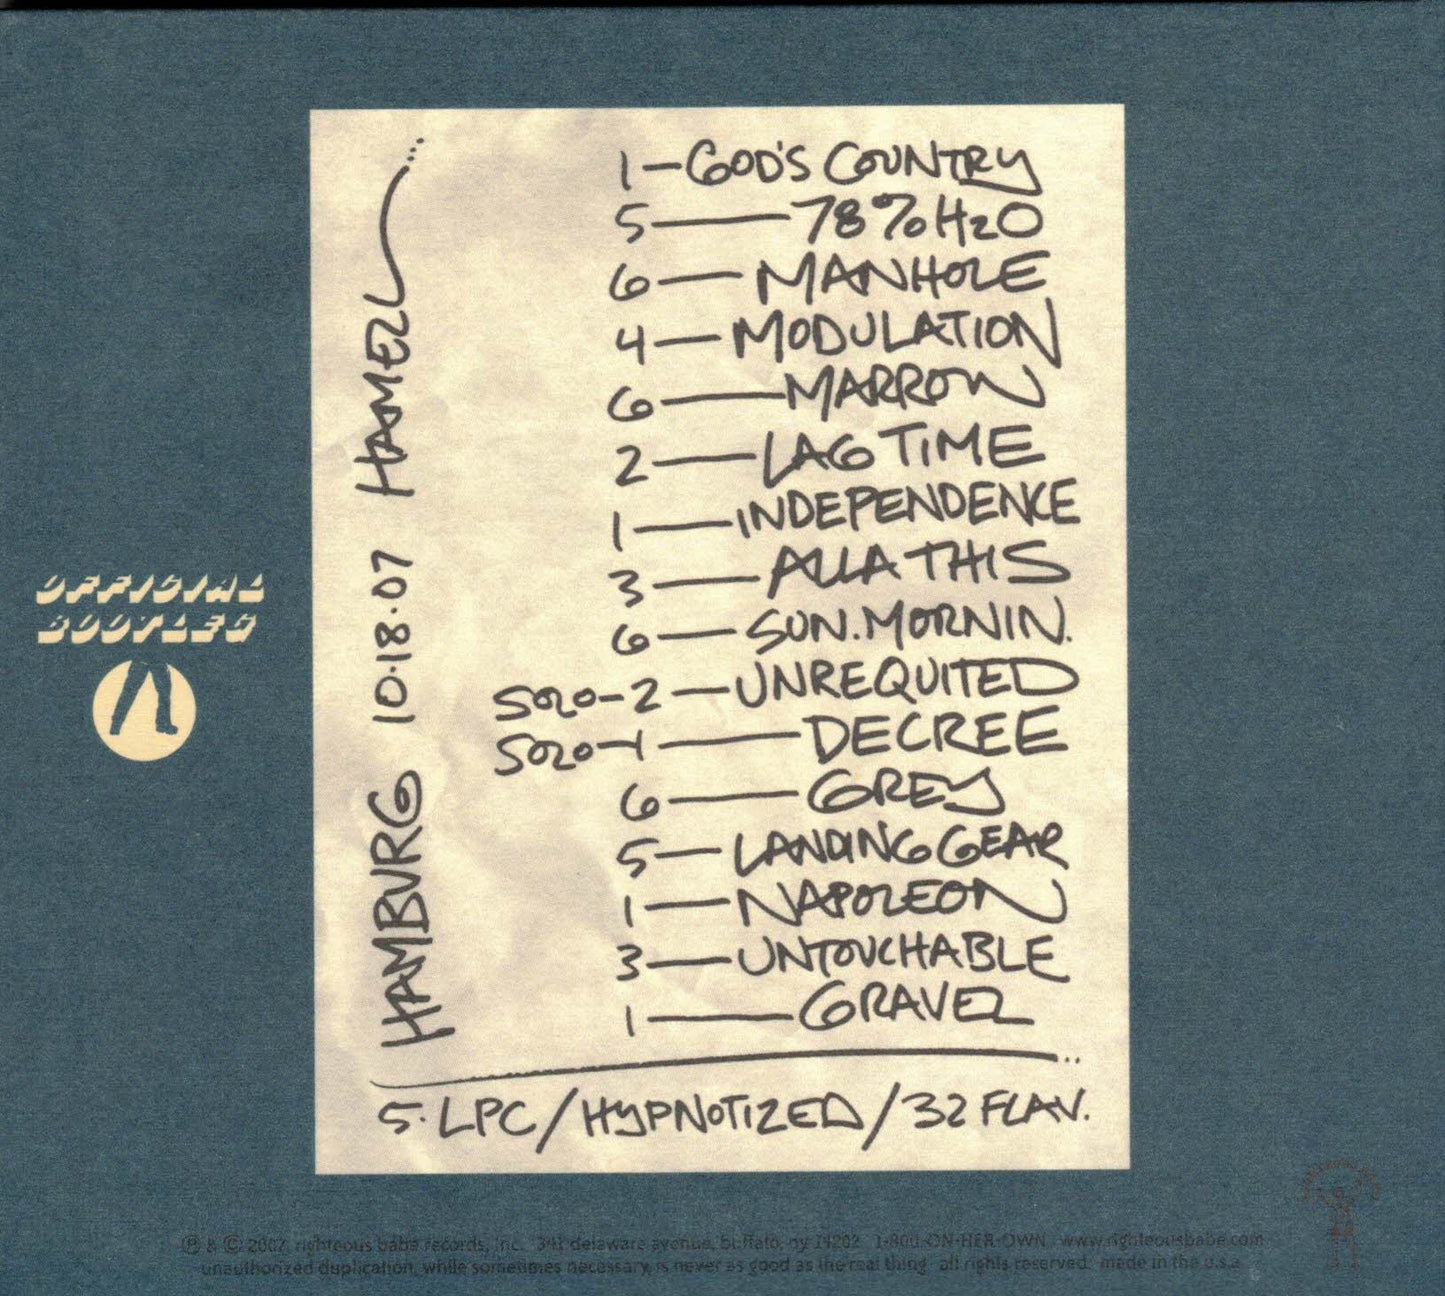 1-GOD'S COUNTRY
5-78% H2O
6-MANHOLE
4-MODULATION
6-MARROW
2-LAG TIME
1-INDEPENDENCE
3-ALLA THIS
6-SUN. MORNIN.
SOLO-2-UNREQUITED
SOLO-1-DECREE
6-GREY
5-LANDING GEAR
1-NAPOLEON
3-UNTOUCHABLE
1-GRAVEL
5. LPC/HYPNOTIZED/32 FLAV.
HAMBURG 10.18.07 HAMELL...
OFFICIAL
BOOTLEG
℗ & © 2007 righteous babe records, inc. 341 delaware avenue, buffalo, ny 14202 1-800-ON-HER-OWN www.righteousbabe.com
unauthorized duplication, while sometimes necessary, is never as good as the real thing all rights reserved. made in the u.s.a.
RIGHTEOUS BABE